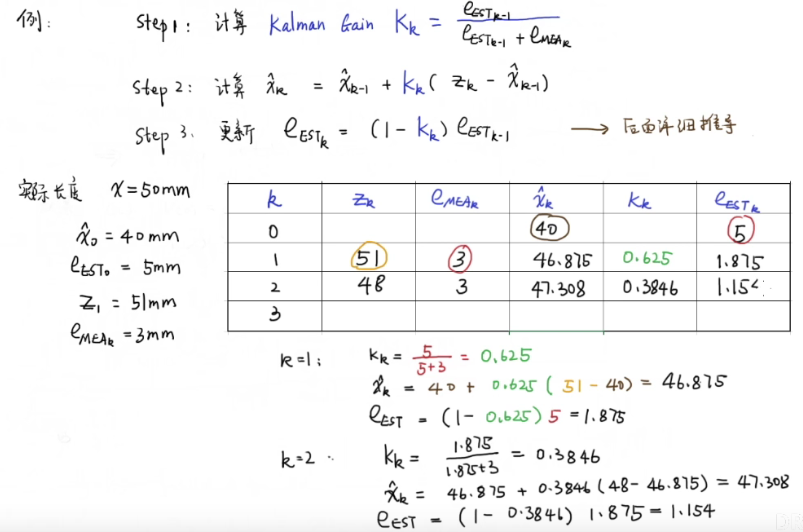 例:
Step 1: 计算 Kalman Gain Kk = eESTk-1 / (eESTk-1 + eMEAk)
Step 2: 计算 x̂k = x̂k-1 + Kk ( zk - x̂k-1)
Step 3. 更新 eESTk = (1 - Kk) eESTk-1 → 后面详细推导
实际长度 x = 50mm
x̂0 = 40mm
eEST0 = 5mm
Z1 = 51mm
eMEAk = 3mm
k Zk eMEAk x̂k Kk eESTk
0 40 5
1 51 3 46.875 0.625 1.875
2 48 3 47.308 0.3846 1.154
3
k=1: Kk = 5 / (5+3) = 0.625
x̂k = 40 + 0.625 ( 51 - 40) = 46.875
eEST = (1 - 0.625) 5 = 1.875
k=2: Kk = 1.875 / (1.875+3) = 0.3846
x̂k = 46.875 + 0.3846 (48 - 46.875) = 47.308
eEST = (1 - 0.3846) 1.875 = 1.154